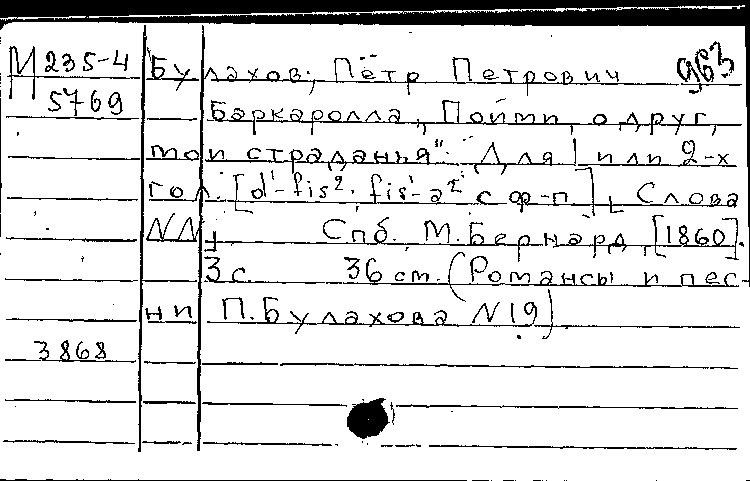 М 235-4 Булахов, Пётр Петрович 963
5769 Баркаролла „Пойми, о друг,
мои страданья". Для 1 или 2-х
гол. [d¹-fis²; fis¹-a² с ф-п.] Слова
NN. Спб., М. Бернард, [1860].
3 с. 36 см. (Романсы и пес-
ни П. Булахова N 19).
3868